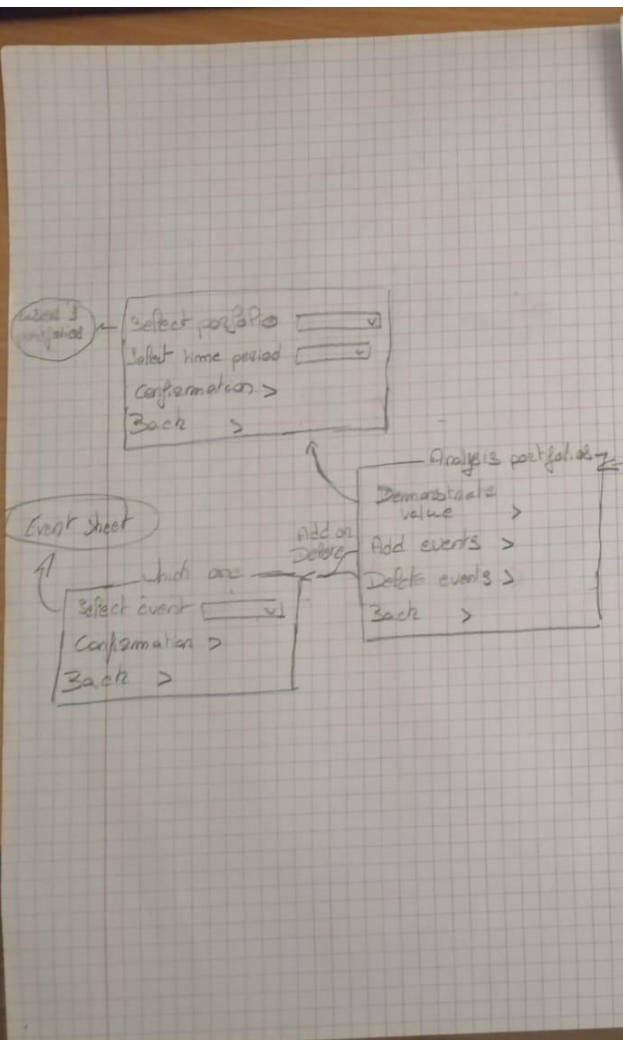 Select porfolio
Select time period
Confirmation >
Back >
Analysis portfolios
Demonstrate
value >
Add events >
Delete events >
Back >
Add or
Delete
Event sheet
which one
Select event
Confirmation >
Back >